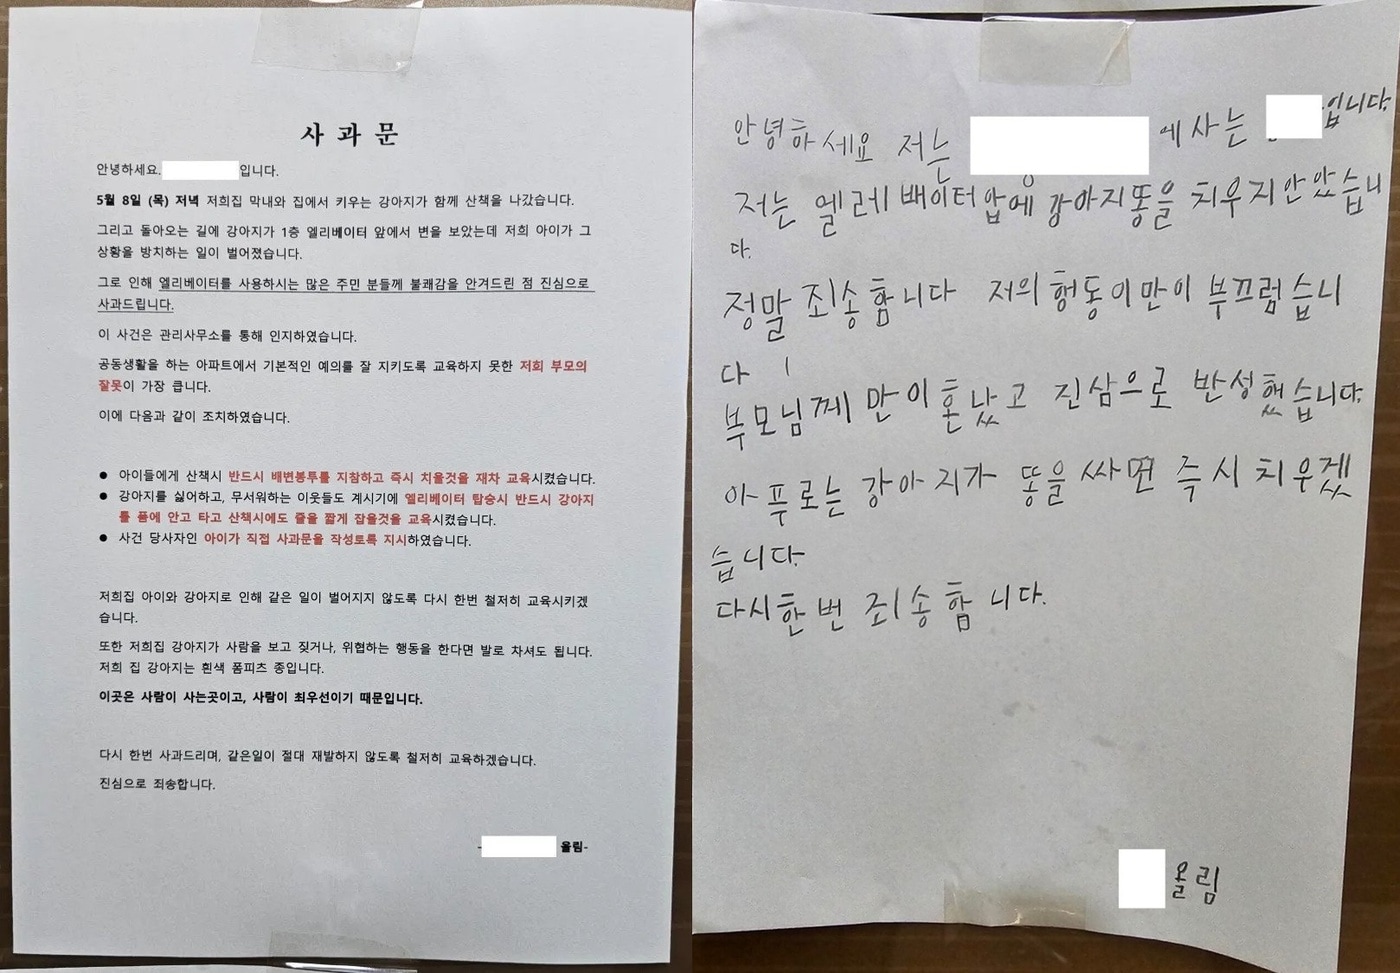 사과문
안녕하세요. 입니다.
5월 8일 (목) 저녁 저희집 막내와 집에서 키우는 강아지가 함께 산책을 나갔습니다.
그리고 돌아오는 길에 강아지가 1층 엘리베이터 앞에서 변을 보았는데 저희 아이가 그
상황을 방치하는 일이 벌어졌습니다.
그로 인해 엘리베이터를 사용하시는 많은 주민 분들께 불쾌감을 안겨드린 점 진심으로
사과드립니다.
이 사건은 관리사무소를 통해 인지하였습니다.
공동생활을 하는 아파트에서 기본적인 예의를 잘 지키도록 교육하지 못한 저희 부모의
잘못이 가장 큽니다.
이에 다음과 같이 조치하였습니다.
● 아이들에게 산책시 반드시 배변봉투를 지참하고 즉시 치울것을 재차 교육시켰습니다.
● 강아지를 싫어하고, 무서워하는 이웃들도 계시기에 엘리베이터 탑승시 반드시 강아지
를 품에 안고 타고 산책시에도 줄을 짧게 잡을것을 교육시켰습니다.
● 사건 당사자인 아이가 직접 사과문을 작성토록 지시하였습니다.
저희집 아이와 강아지로 인해 같은 일이 벌어지지 않도록 다시 한번 철저히 교육시키겠
습니다.
또한 저희집 강아지가 사람을 보고 짖거나, 위협하는 행동을 한다면 발로 차셔도 됩니다.
저희 집 강아지는 흰색 폼피츠 종입니다.
이곳은 사람이 사는곳이고, 사람이 최우선이기 때문입니다.
다시 한번 사과드리며, 같은일이 절대 재발하지 않도록 철저히 교육하겠습니다.
진심으로 죄송합니다.
- 올림-
안녕하세요 저는 에사는 입니다.
저는 엘레배이터앞에 강아지똥을 치우지안았습니
다.
정말 죄송합니다 저의행동이만이 부끄럽습니
다
부모님께 만이혼났고 진삼으로 반성했습니다.
아푸로는 강아지가 똥을싸면 즉시치우겠
습니다.
다시한번 죄송합니다.
올림